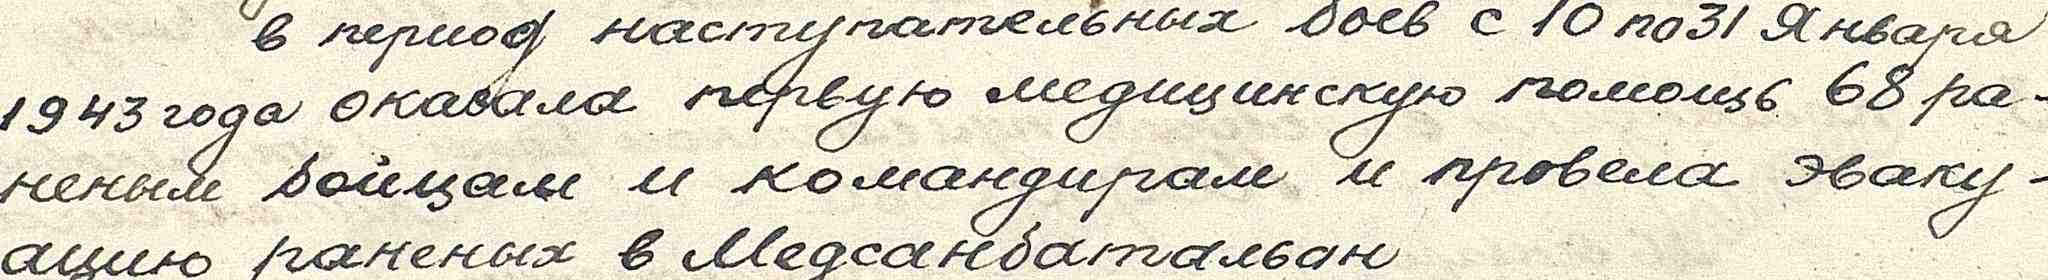 в период наступательных боев с 10 по 31 Января
1943 года оказала первую медицинскую помощь 68 ра-
неным бойцам и командирам и провела эваку-
ацию раненых в Медсанбатальан